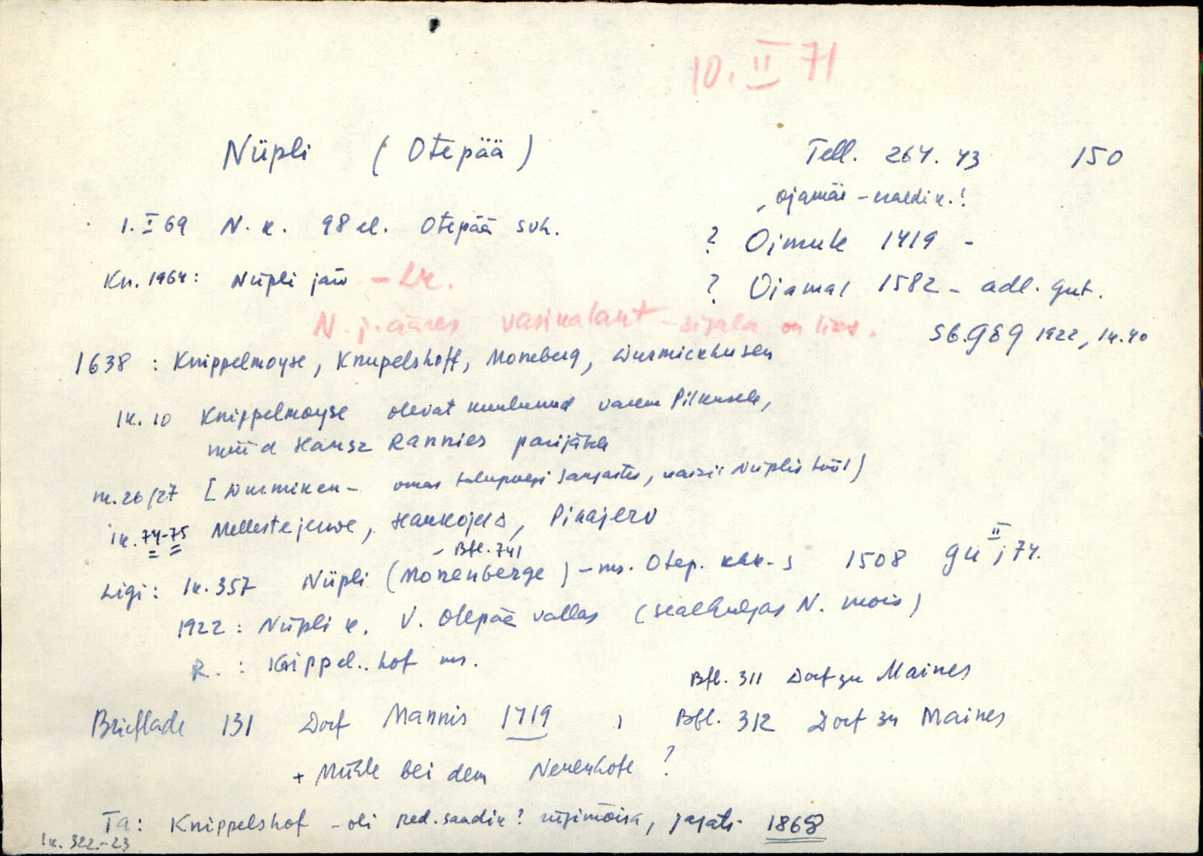 10. II 71
Nüpli (Otepää)
Tell. 264. 43 150
1. I 69 N. k. 98 el. Otepää suh.
? Ojmule 1419 -
Kn. 1964: Nüpli järv - Lk.
? Oiamal 1582 - adl. gut.
N. j. ääres vasikalaut - sigala on
SbGEG 1922, lk. 40
1638 : Knippelmoyse, Knupelshoff, Moneberg, Wurmickhusen
lk. 10 Knippelmoyse olevat kuulunud varem Pilkusele,
nüüd Hansz Rannies
lk. 26/27 [Wurmicken - omas talupoegi
lk. 74-75 Mellestejerwe, Pikajerv
- Bfl. 741
Ligi: lk. 357 Nüpli (Monenberge) - ms. Otep. khk-s 1508 GU II, 74.
1922: Nüpli k. V. Otepää vallas (sealhulgas N. mõis)
R. : Knippel..hof ms.
Bfl. 311 Dorf zu Maines
Brieflade 131 Dorf Mannis 1419 , Bfl. 312 Dorf zu Maines
+ Mühle bei dem Nenenhofe ?
Ta: Knippelshof - oli rüütlimõisa, jagati 1868
lk. 322-23